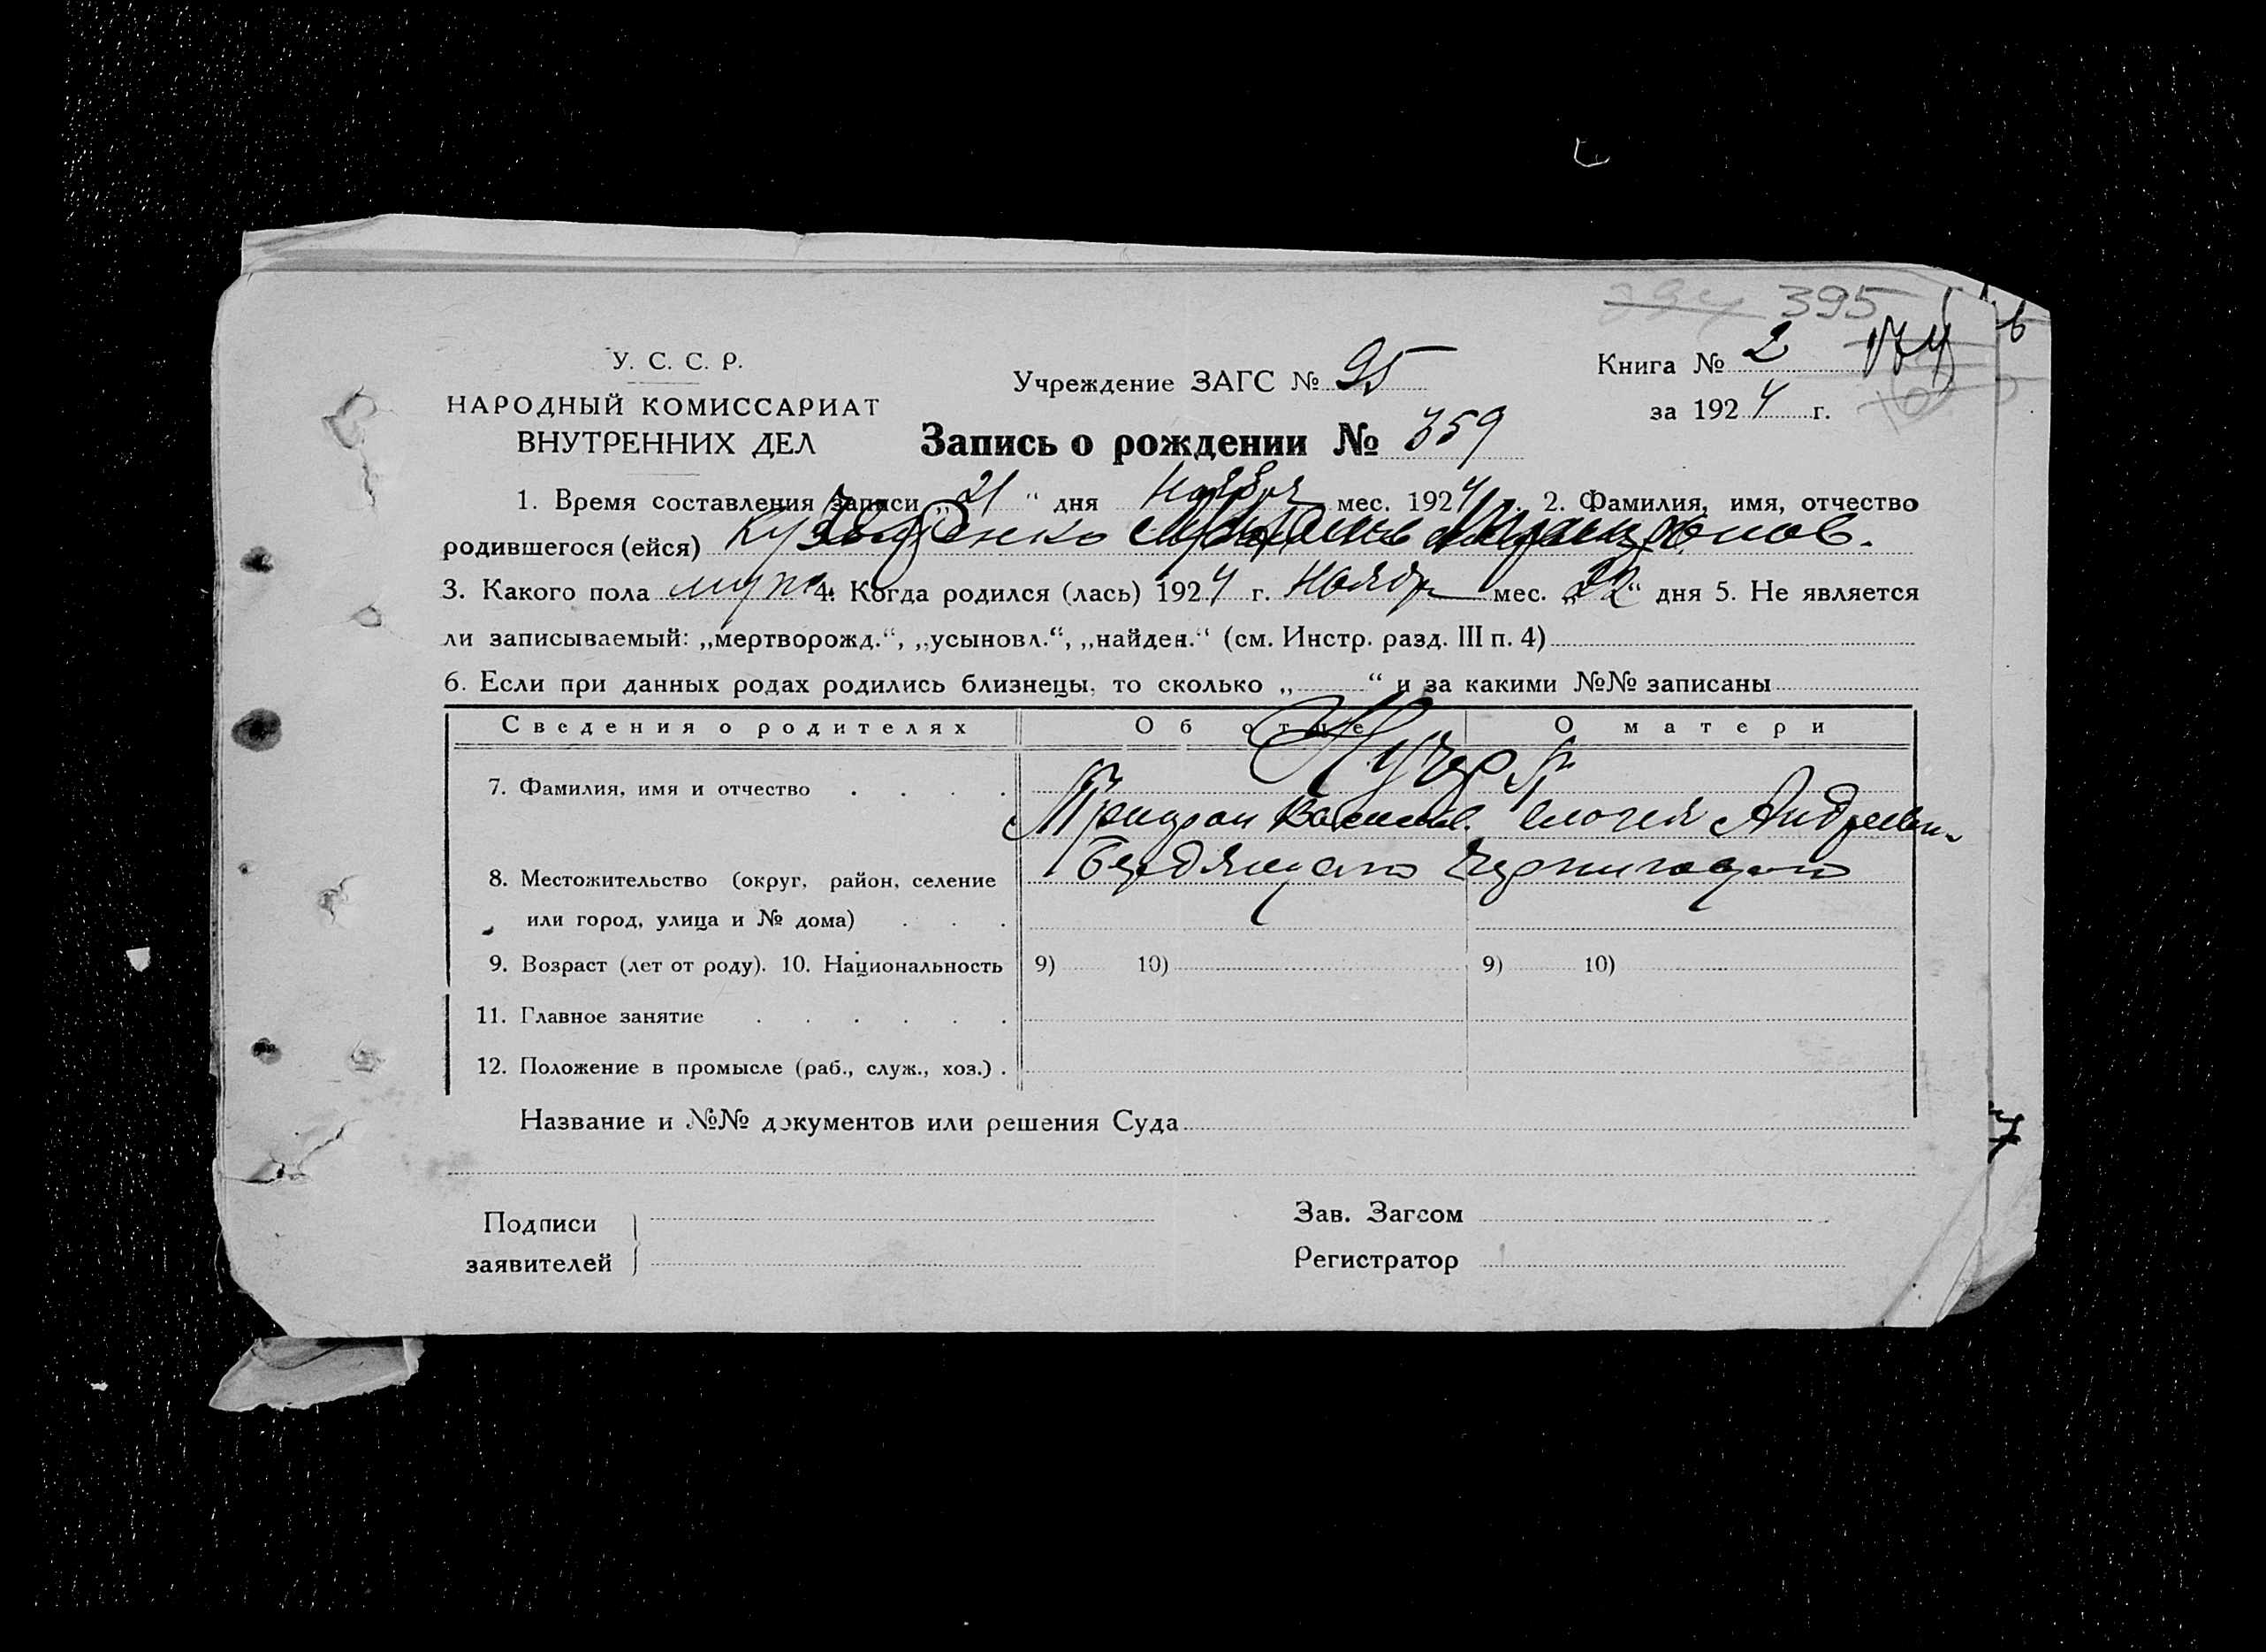 395
У. С. С. Р.
Учреждение ЗАГС № 95
Книга № 2
НАРОДНЫЙ КОМИССАРИАТ
за 1924 г.
ВНУТРЕННИХ ДЕЛ
Запись о рождении № 359
1. Время составления записи „21" дня ноября мес. 1924 г. 2. Фамилия, имя, отчество
родившегося (ейся)
3. Какого пола муж 4. Когда родился (лась) 1924 г. ноябр мес. „22" дня 5. Не является
ли записываемый: „мертворожд.", „усыновл.", „найден." (см. Инстр. разд. III п. 4)
6. Если при данных родах родились близнецы, то сколько „ " и за какими №№ записаны
Сведения о родителях Об отце О матери
7. Фамилия, имя и отчество
Андреевн
8. Местожительство (округ, район, селение
или город, улица и № дома)
9. Возраст (лет от роду). 10. Национальность 9) 10) 9) 10)
11. Главное занятие
12. Положение в промысле (раб., служ., хоз.)
Название и №№ документов или решения Суда
Подписи
заявителей
Зав. Загсом
Регистратор